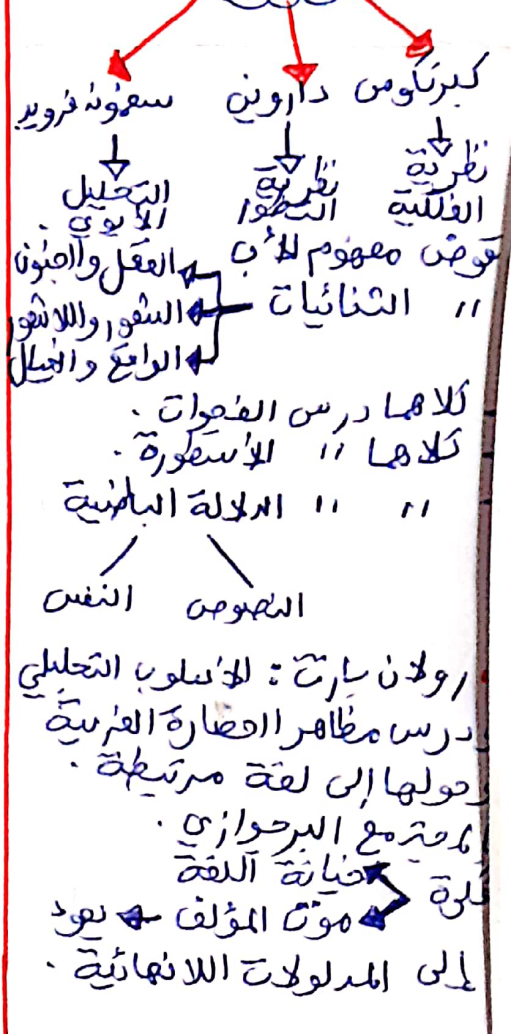 كبرنكوس داروين سغموند فرويد
نظرية نظرية التحليل
الفلكية التطور الأبوي .
قوض مفهوم الأب العقل والجنون
〃 الثنائيات الشعور واللاشعور
الواقع والخيال
كلاهما درس الفجوات .
كلاهما 〃 الأسطورة .
〃 〃 الدلالة الباطنية
النصوص النفس
رولان بارت : الأسلوب التحليلي
درس مظاهر الحضارة الغربية
وحولها إلى لغة مرتبطة .
المجتمع البرجوازي .
خيانة اللغة
فكرة
موت المؤلف يعود
إلى المدلولات اللانهائية .